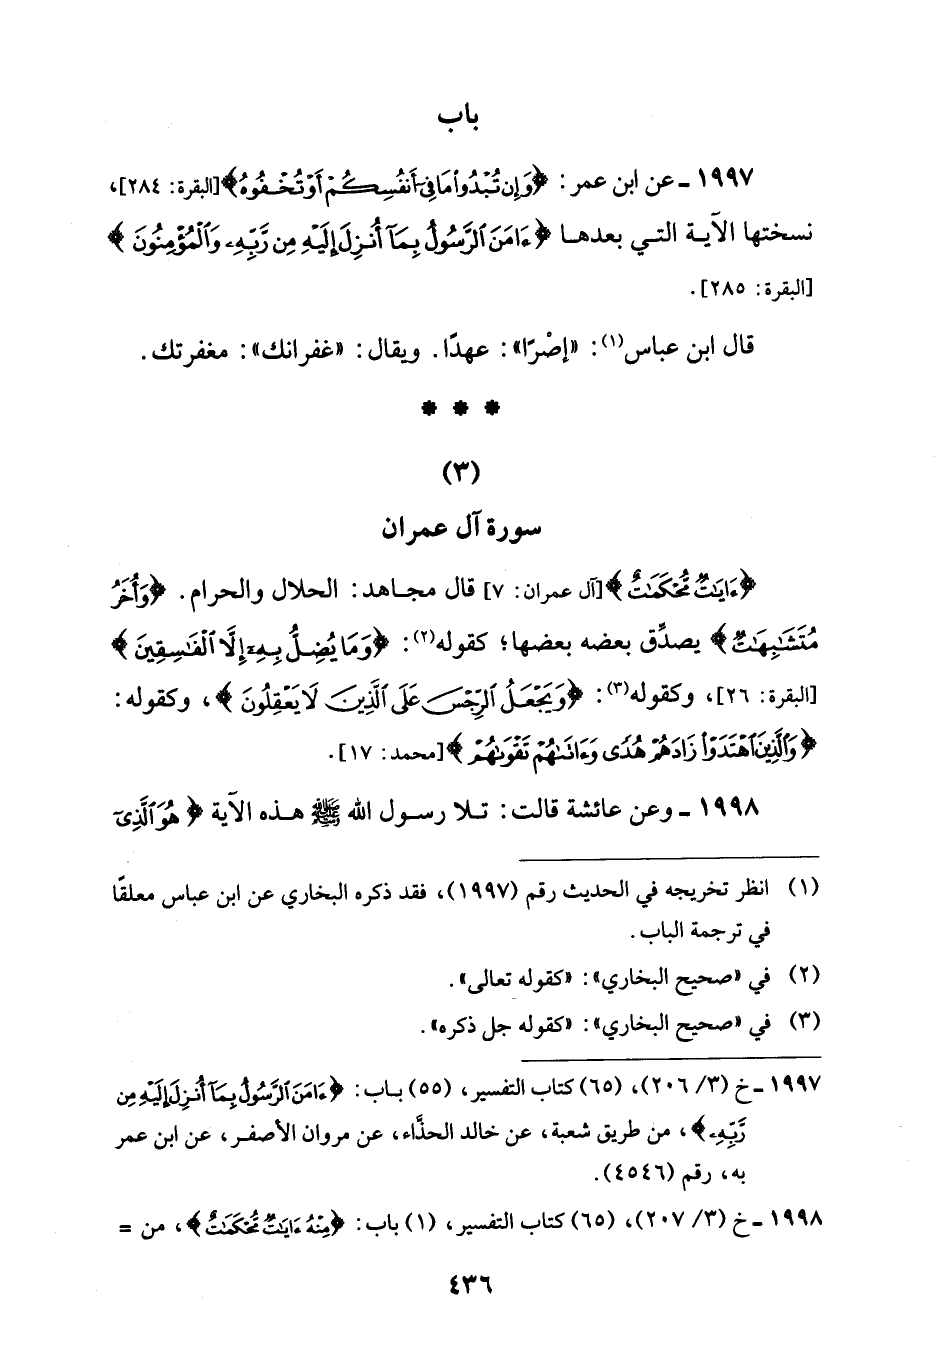 باب
١٩٩٧ ـ عن ابن عمر: ﴿وَإِن تُبْدُوا مَا فِي أَنفُسِكُمْ أَوْ تُخْفُوهُ﴾ [البقرة: ٢٨٤]،
نسختها الآية التي بعدها ﴿ءَامَنَ ٱلرَّسُولُ بِمَآ أُنزِلَ إِلَيْهِ مِن رَّبِّهِۦ وَٱلْمُؤْمِنُونَ﴾
[البقرة: ٢٨٥].
قال ابن عباس(١): «إصْرًا»: عهدًا. ويقال: «غفرانك»: مغفرتك.
* * *
(٣)
سورة آل عمران
﴿ءَايَٰتٌ مُّحْكَمَٰتٌ﴾ [آل عمران: ٧] قال مجاهد: الحلال والحرام. ﴿وَأُخَرُ
مُتَشَٰبِهَٰتٌ﴾ يصدِّق بعضه بعضها؛ كقوله(٢): ﴿وَمَا يُضِلُّ بِهِۦٓ إِلَّا ٱلْفَٰسِقِينَ﴾
[البقرة: ٢٦]، وكقوله(٣): ﴿وَيَجْعَلُ ٱلرِّجْسَ عَلَى ٱلَّذِينَ لَا يَعْقِلُونَ﴾، وكقوله:
﴿وَٱلَّذِينَ ٱهْتَدَوْا۟ زَادَهُمْ هُدًى وَءَاتَىٰهُمْ تَقْوَىٰهُمْ﴾ [محمد: ١٧].
١٩٩٨ ـ وعن عائشة قالت: تلا رسول الله ﷺ هذه الآية ﴿هُوَ ٱلَّذِىٓ
(١) انظر تخريجه في الحديث رقم (١٩٩٧)، فقد ذكره البخاري عن ابن عباس معلقًا
في ترجمة الباب.
(٢) في «صحيح البخاري»: «كقوله تعالى».
(٣) في «صحيح البخاري»: «كقوله جل ذكره».
١٩٩٧ ـ خ (٣/ ٢٠٦)، (٦٥) كتاب التفسير، (٥٥) باب: ﴿ءَامَنَ ٱلرَّسُولُ بِمَآ أُنزِلَ إِلَيْهِ مِن
رَّبِّهِۦ﴾، من طريق شعبة، عن خالد الحذَّاء، عن مروان الأصفر، عن ابن عمر
به، رقم (٤٥٤٦).
١٩٩٨ ـ خ (٣/ ٢٠٧)، (٦٥) كتاب التفسير، (١) باب: ﴿مِنْهُ ءَايَٰتٌ مُّحْكَمَٰتٌ﴾، من =
٤٣٦